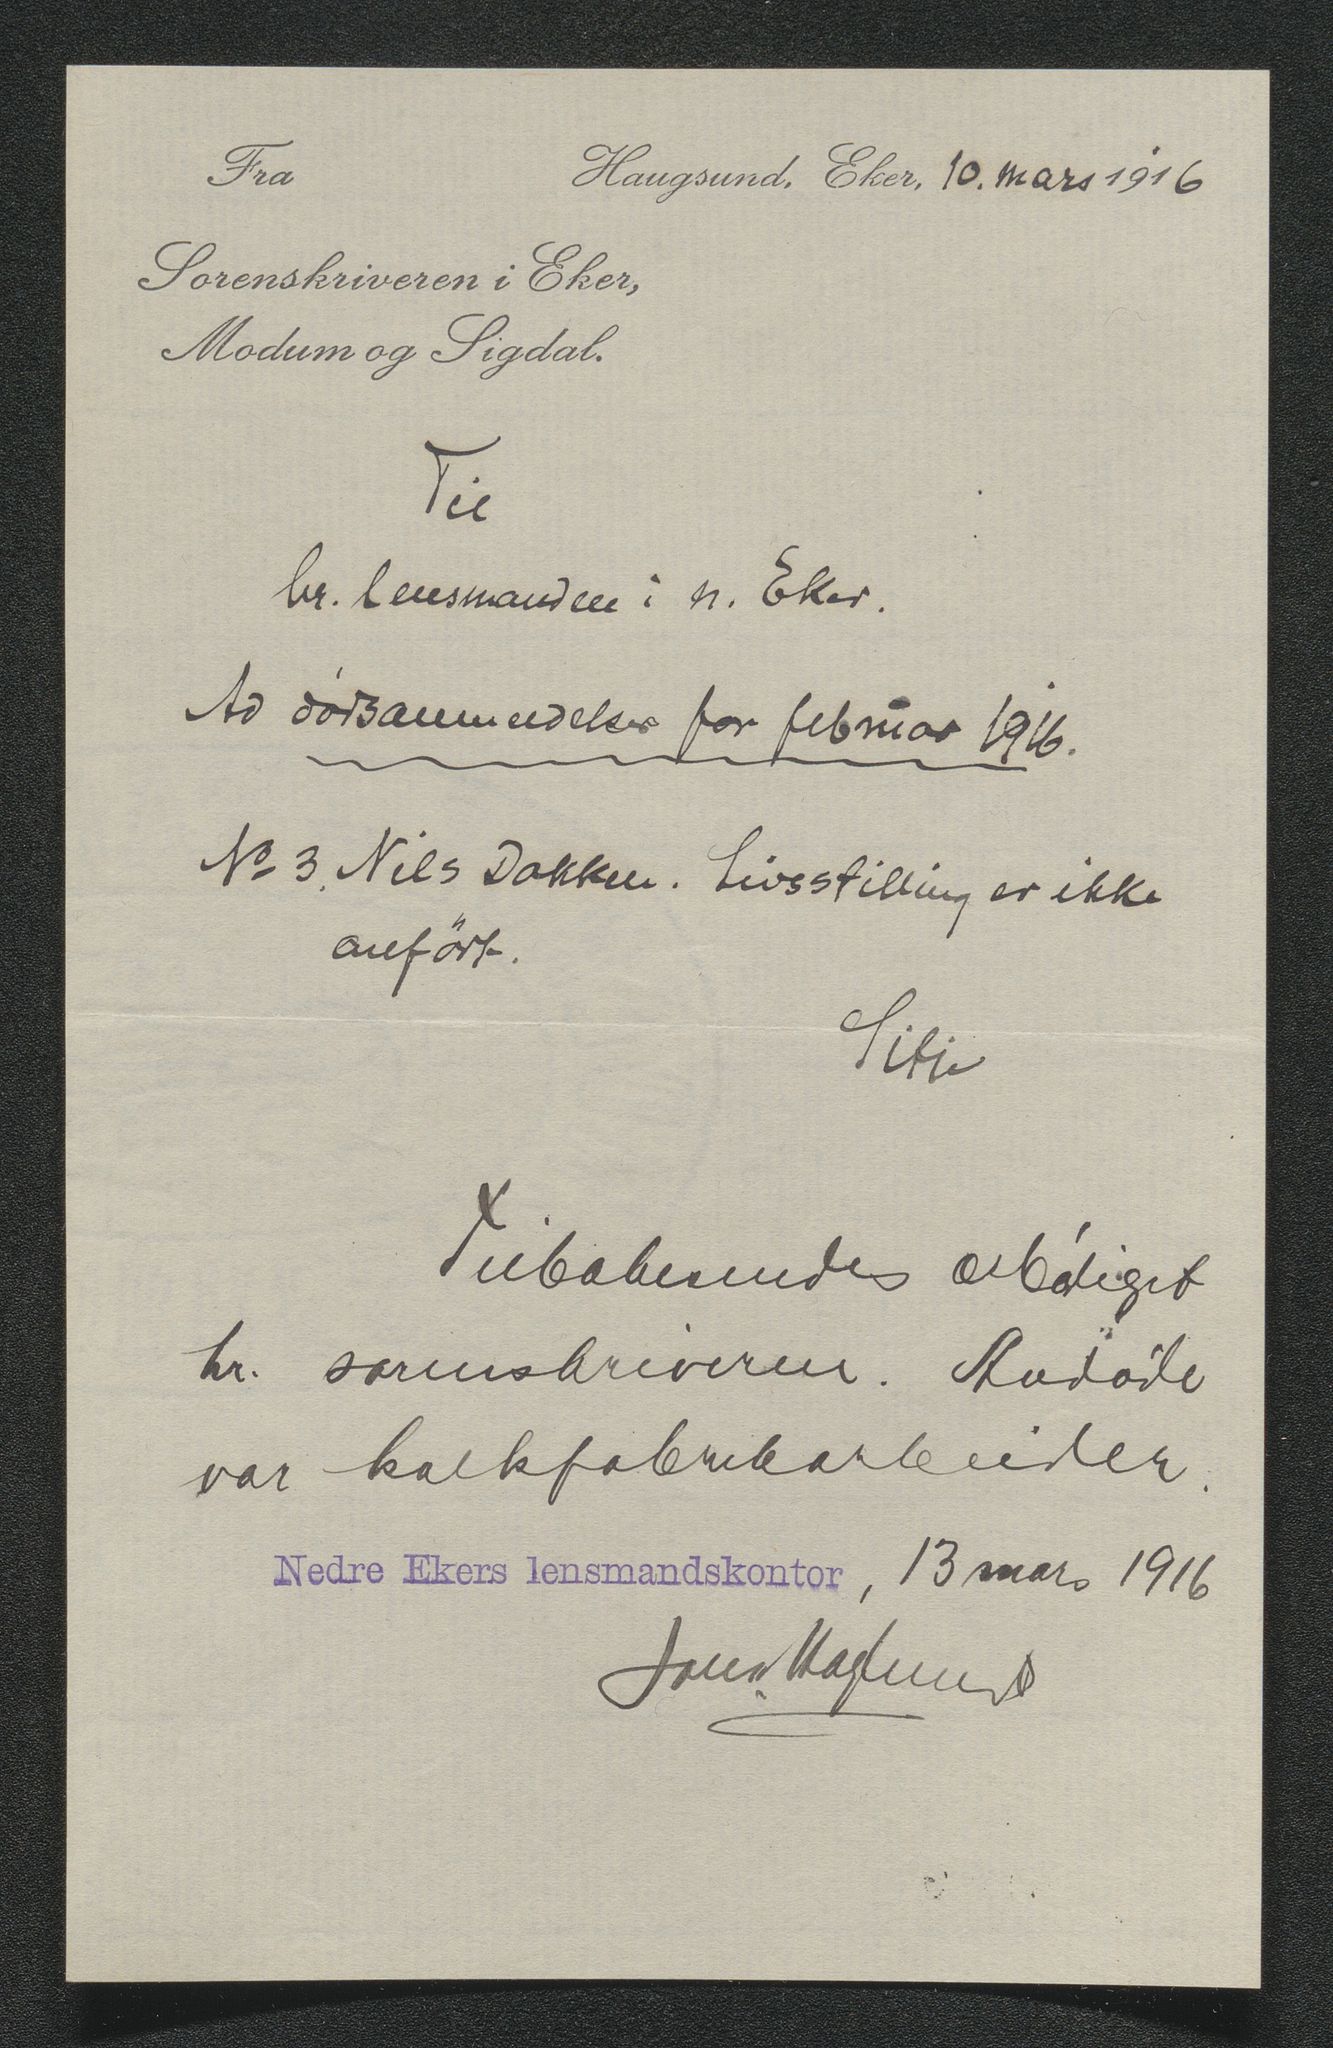 Fra
Haugsund, Eker, 10. mars 1916
Sorenskriveren i Eker,
Modum og Sigdal.
Til
hr. lensmanden i n. Eker.
Ad dødsanmeldelser for februar 1916.
No 3. Nils Dokken. Livsstilling er ikke
anført.
Tilbakesendes ærbødigst
hr. sorenskriveren. Avdøde
var kalkfabrikarbeider.
Nedre Ekers lensmandskontor, 13 mars 1916